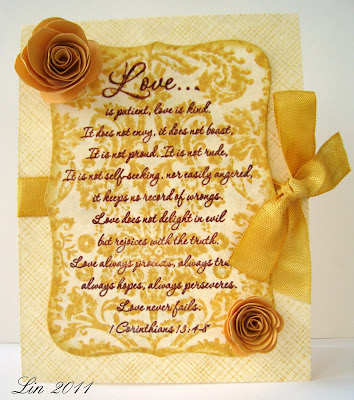 Love...
is patient, love is kind.
It does not envy, it does not boast,
It is not proud. It is not rude,
It is not self-seeking, nor easily angered,
it keeps no record of wrongs.
Love does not delight in evil
but rejoices with the truth.
Love always protects, always
always hopes, always perseveres.
Love never fails.
1 Corinthians 13:4-8
Lin 2011